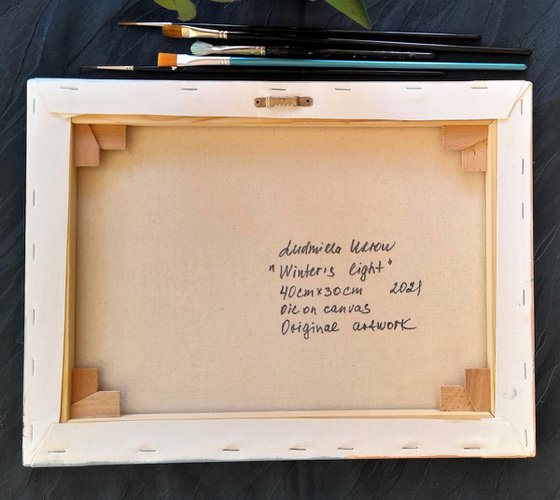 Ludmilla Ukrow
"Winter's light"
40cm x 30cm 2021
Oil on canvas
Original artwork